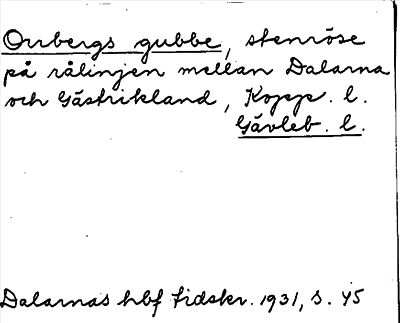 Orrbergs gubbe, stenröse
på rålinjen mellan Dalarna
och Gästrikland, Kopp. l.
Gävleb. l.
Dalarnas hbf tidskr. 1931, s. 45